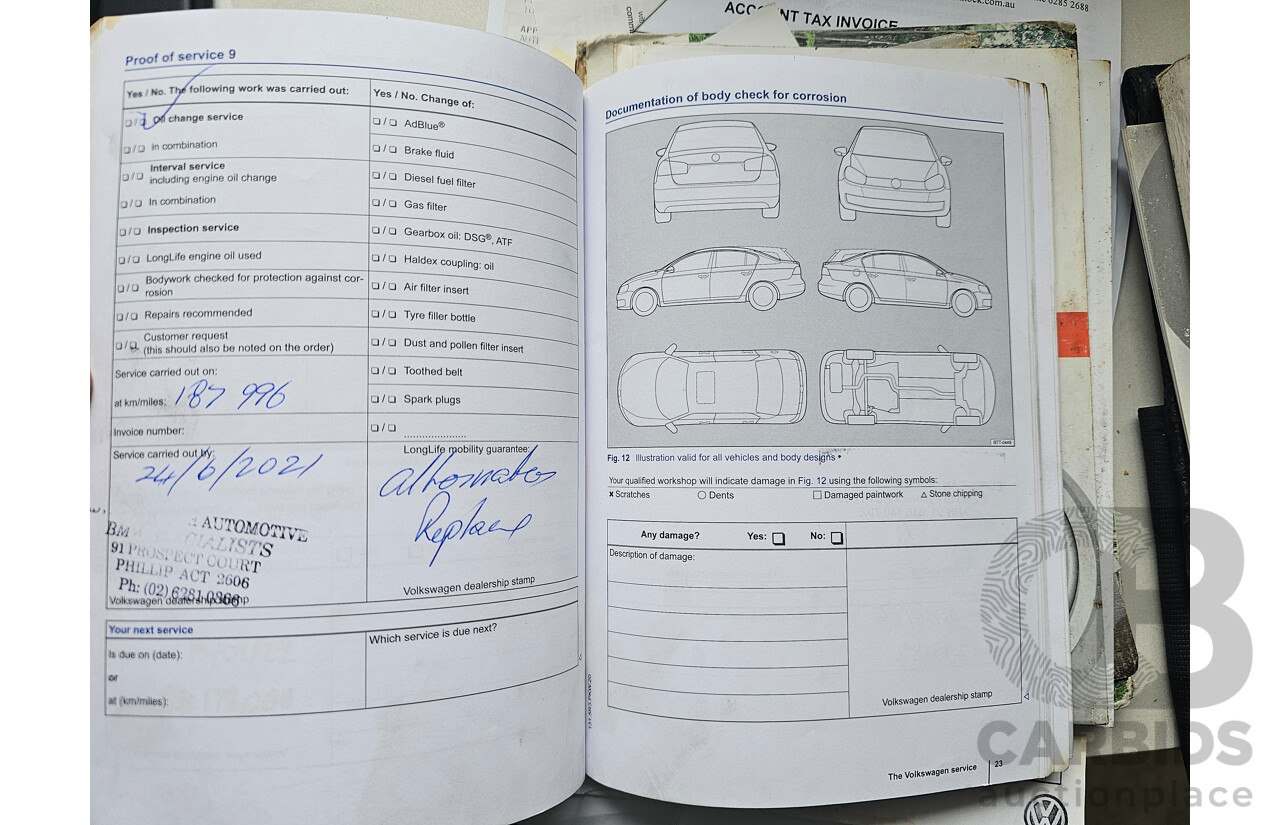 ACCOUNT TAX INVOICE
6285 2688
Proof of service 9
Yes / No. The following work was carried out:
Oil change service
In combination
Interval service
including engine oil change
In combination
Inspection service
LongLife engine oil used
Bodywork checked for protection against cor-
rosion
Repairs recommended
Customer request
(this should also be noted on the order)
Service carried out on:
at km/miles: 187 996
Invoice number:
Service carried out by:
24/6/2021
AUTOMOTIVE
CIALISTS
91 PROSPECT COURT
PHILLIP ACT 2606
Ph: (02) 6281 0866
Volkswagen dealership stamp
Yes / No. Change of:
AdBlue®
Brake fluid
Diesel fuel filter
Gas filter
Gearbox oil: DSG®, ATF
Haldex coupling: oil
Air filter insert
Tyre filler bottle
Dust and pollen filter insert
Toothed belt
Spark plugs
LongLife mobility guarantee:
Volkswagen dealership stamp
Your next service
Is due on (date):
or
at (km/miles):
Which service is due next?
Documentation of body check for corrosion
Fig. 12 Illustration valid for all vehicles and body designs
Your qualified workshop will indicate damage in Fig. 12 using the following symbols:
x Scratches ○ Dents □ Damaged paintwork △ Stone chipping
Any damage? Yes: No:
Description of damage:
Volkswagen dealership stamp
The Volkswagen service 23
CB
CARBIDS
auctionplace